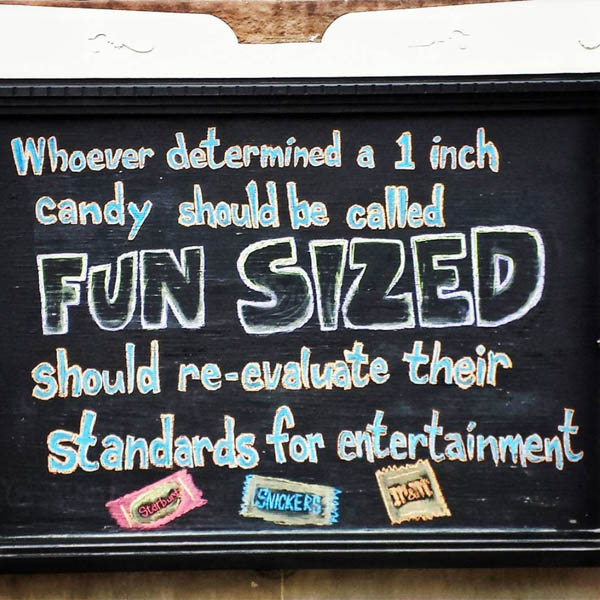 Whoever determined a 1 inch
candy should be called
FUN SIZED
should re-evaluate their
standards for entertainment
Starburst SNICKERS m&m